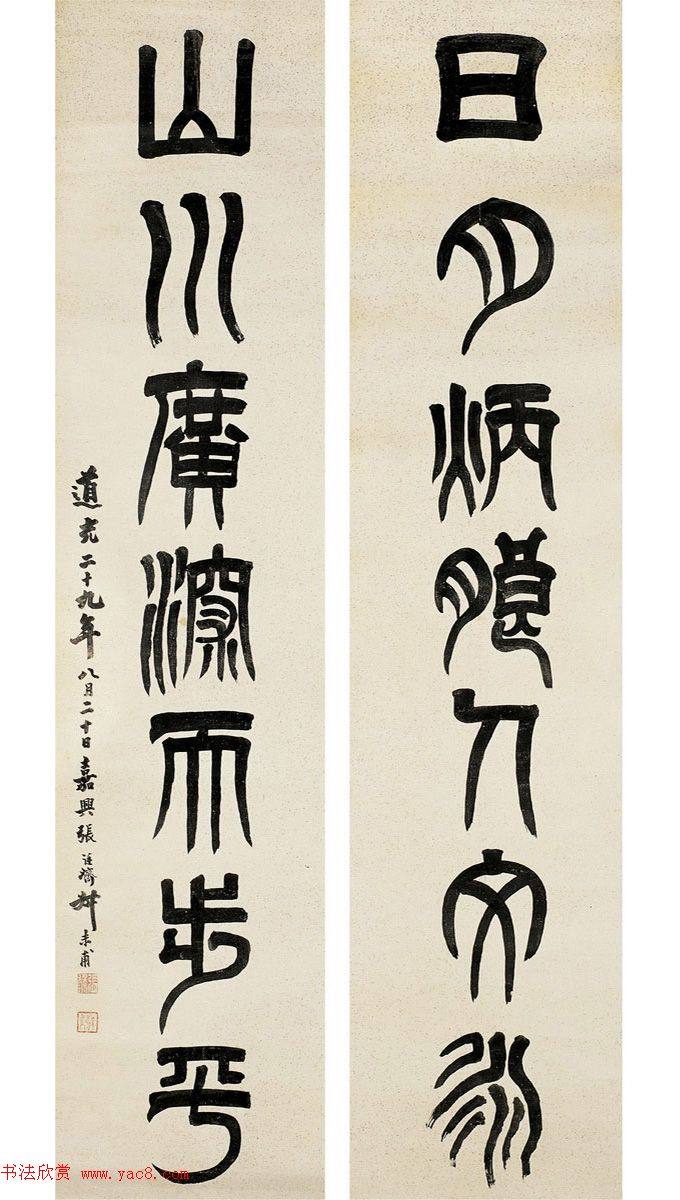 日月炳朖人文永
山川廣深天步平
道光二十九年八月二十日嘉興張廷濟叔未甫
书法欣赏 www.yac8.com